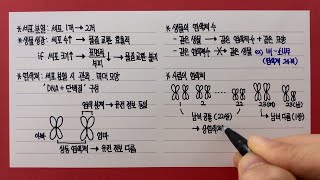 * 세포 분열 : 세포 1개 → 2개
* 생물 성장 : 세포 수↑ → 물질 교환 효율적
if 세포 크기↑ → 표면적/부피 ↓ → 물질 교환 불리
* 염색체 : 세포 분열 시 관찰, 막대 모양
"DNA + 단백질" 구성
염색 분체 → 유전 정보 동일
아빠
엄마
상동 염색체 → 유전 정보 다름
* 생물의 염색체 수
- 같은 생물 → 같은 염색체 수 + 같은 모양
- 같은 염색체 수 → 같은 생물
* 사람의 염색체
1
2
22
23(여)
23(남)
남녀 공통 (22쌍)
→ 상염색체
남녀 다름 (1쌍)